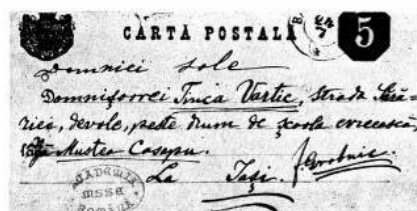 CARTA POSTALĂ
24
7
5
Domniei sale
Domnișorei Tinca Vartic, Strada
riei, devale, peste drum de școala evreească
lângă Mustea Casapu.
La Iași.
ACADEMIA
msse
ROMÂNĂ